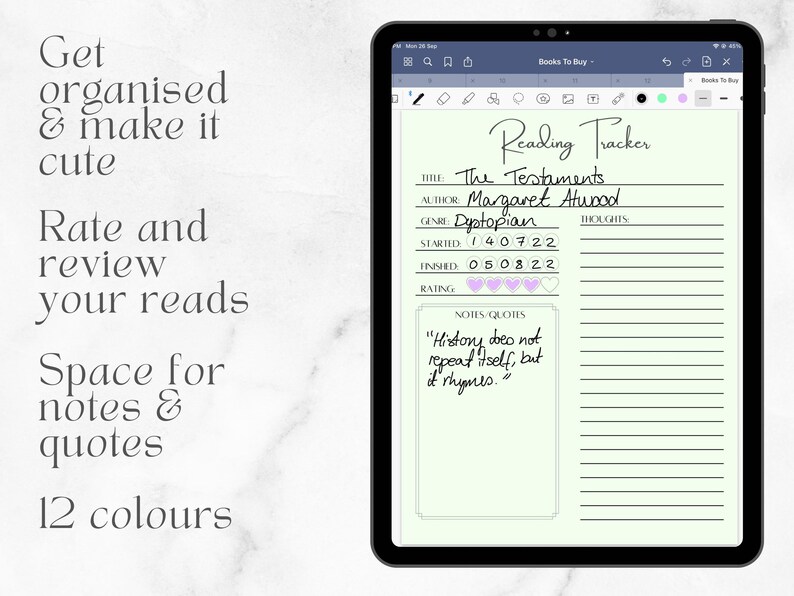 Get
organised
& make it
cute
Rate and
review
your reads
Space for
notes &
quotes
12 colours
PM Mon 26 Sep 45%
Books To Buy
9 10 11 12 Books To Buy
Reading Tracker
TITLE: The Testaments
AUTHOR: Margaret Atwood
GENRE: Dyptopian
THOUGHTS:
STARTED: 1 4 0 7 2 2
FINISHED: 0 5 0 8 2 2
RATING:
NOTES/QUOTES
"History does not
repeat itself, but
it rhymes."